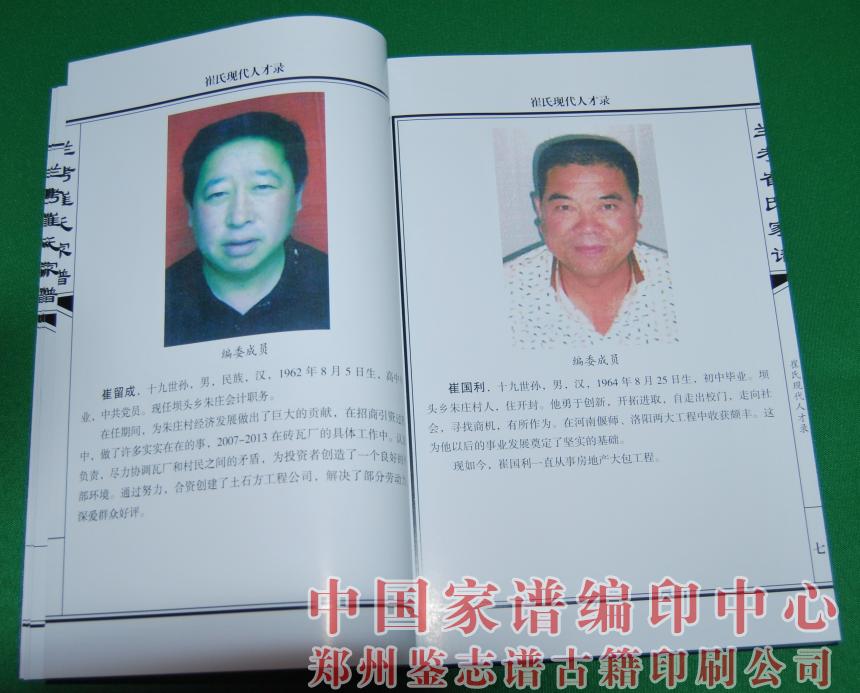 崔氏现代人才录
兰考崔氏家谱
编委成员
崔留成，十九世孙，男，民族，汉，1962 年 8 月 5 日生，高中
业，中共党员。现任坝头乡朱庄会计职务。
在任期间，为朱庄村经济发展做出了巨大的贡献，在招商引资过
中，做了许多实实在在的事，2007-2013 在砖瓦厂的具体工作中。认
负责，尽力协调瓦厂和村民之间的矛盾，为投资者创造了一个良好的
部环境。通过努力，合资创建了土石方工程公司，解决了部分劳动力
深爱群众好评。
崔氏现代人才录
兰考崔氏家谱
编委成员
崔国利，十九世孙，男，汉，1964 年 8 月 25 日生，初中毕业。坝
头乡朱庄村人，住开封。他勇于创新，开拓进取，自走出校门，走向社
会，寻找商机，有所作为。在河南偃师、洛阳两大工程中收获颇丰。这
为他以后的事业发展奠定了坚实的基础。
现如今，崔国利一直从事房地产大包工程。
崔氏现代人才录
七
中国家谱编印中心
郑州鉴志谱古籍印刷公司